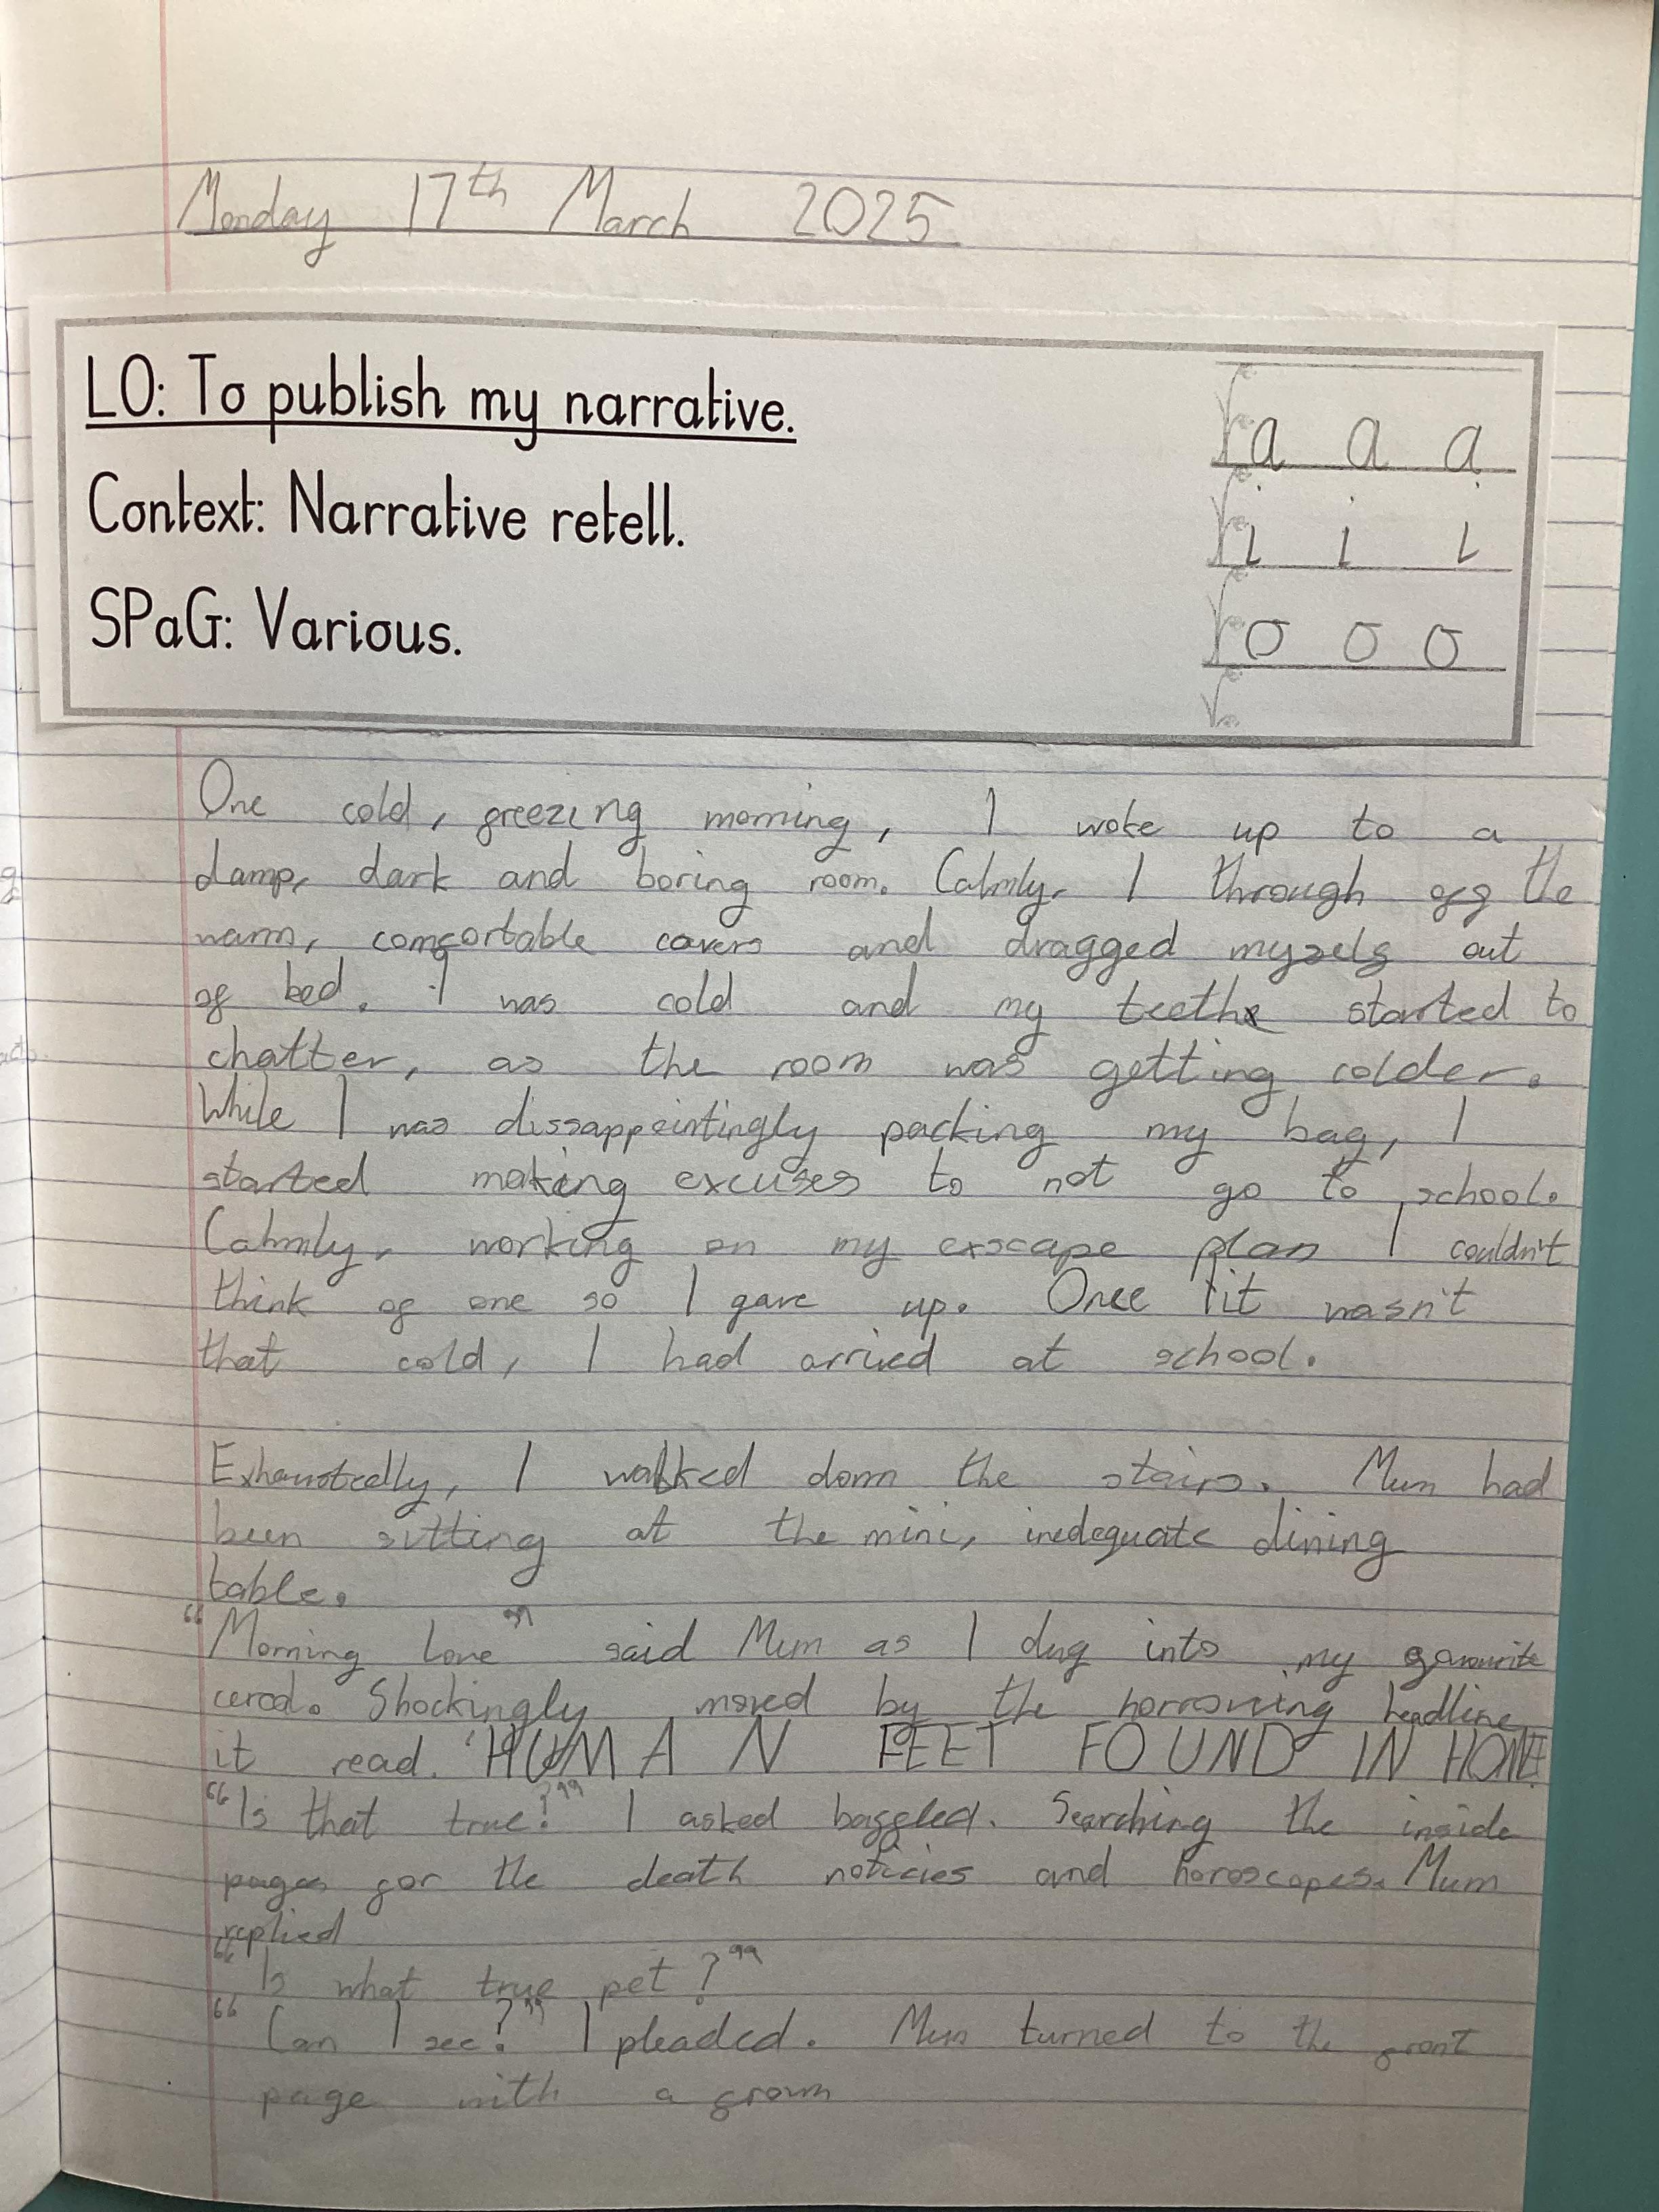 Monday 17th March 2025
LO: To publish my narrative.
Context: Narrative retell.
SPaG: Various.
a a a
i i i
o o o
One cold, freezing morning, I woke up to a
damp, dark and boring room. Calmly, I through off the
warm, comfortable covers and dragged myself out
of bed. I was cold and my teeth started to
chatter, as the room was getting colder.
While I was dissappointingly packing my bag, I
started making excuses to not go to school.
Calmly, working on my exscape plan I couldn't
think of one so I gave up. Once it wasn't
that cold, I had arrived at school.
Exhaustedly, I walked down the stairs. Mum had
been sitting at the mini, inedequate dining
table.
"Morning Love" said Mum as I dug into my favourite
cereal. Shockingly moved by the horrorving headline
it read. 'HUMAN FEET FOUND IN HOME!
"Is that true?" I asked baffled. Searching the inside
pages for the death noticies and horoscopes. Mum
replied
"Is what true pet?"
"Can I see?" I pleaded. Mum turned to the front
page with a frown